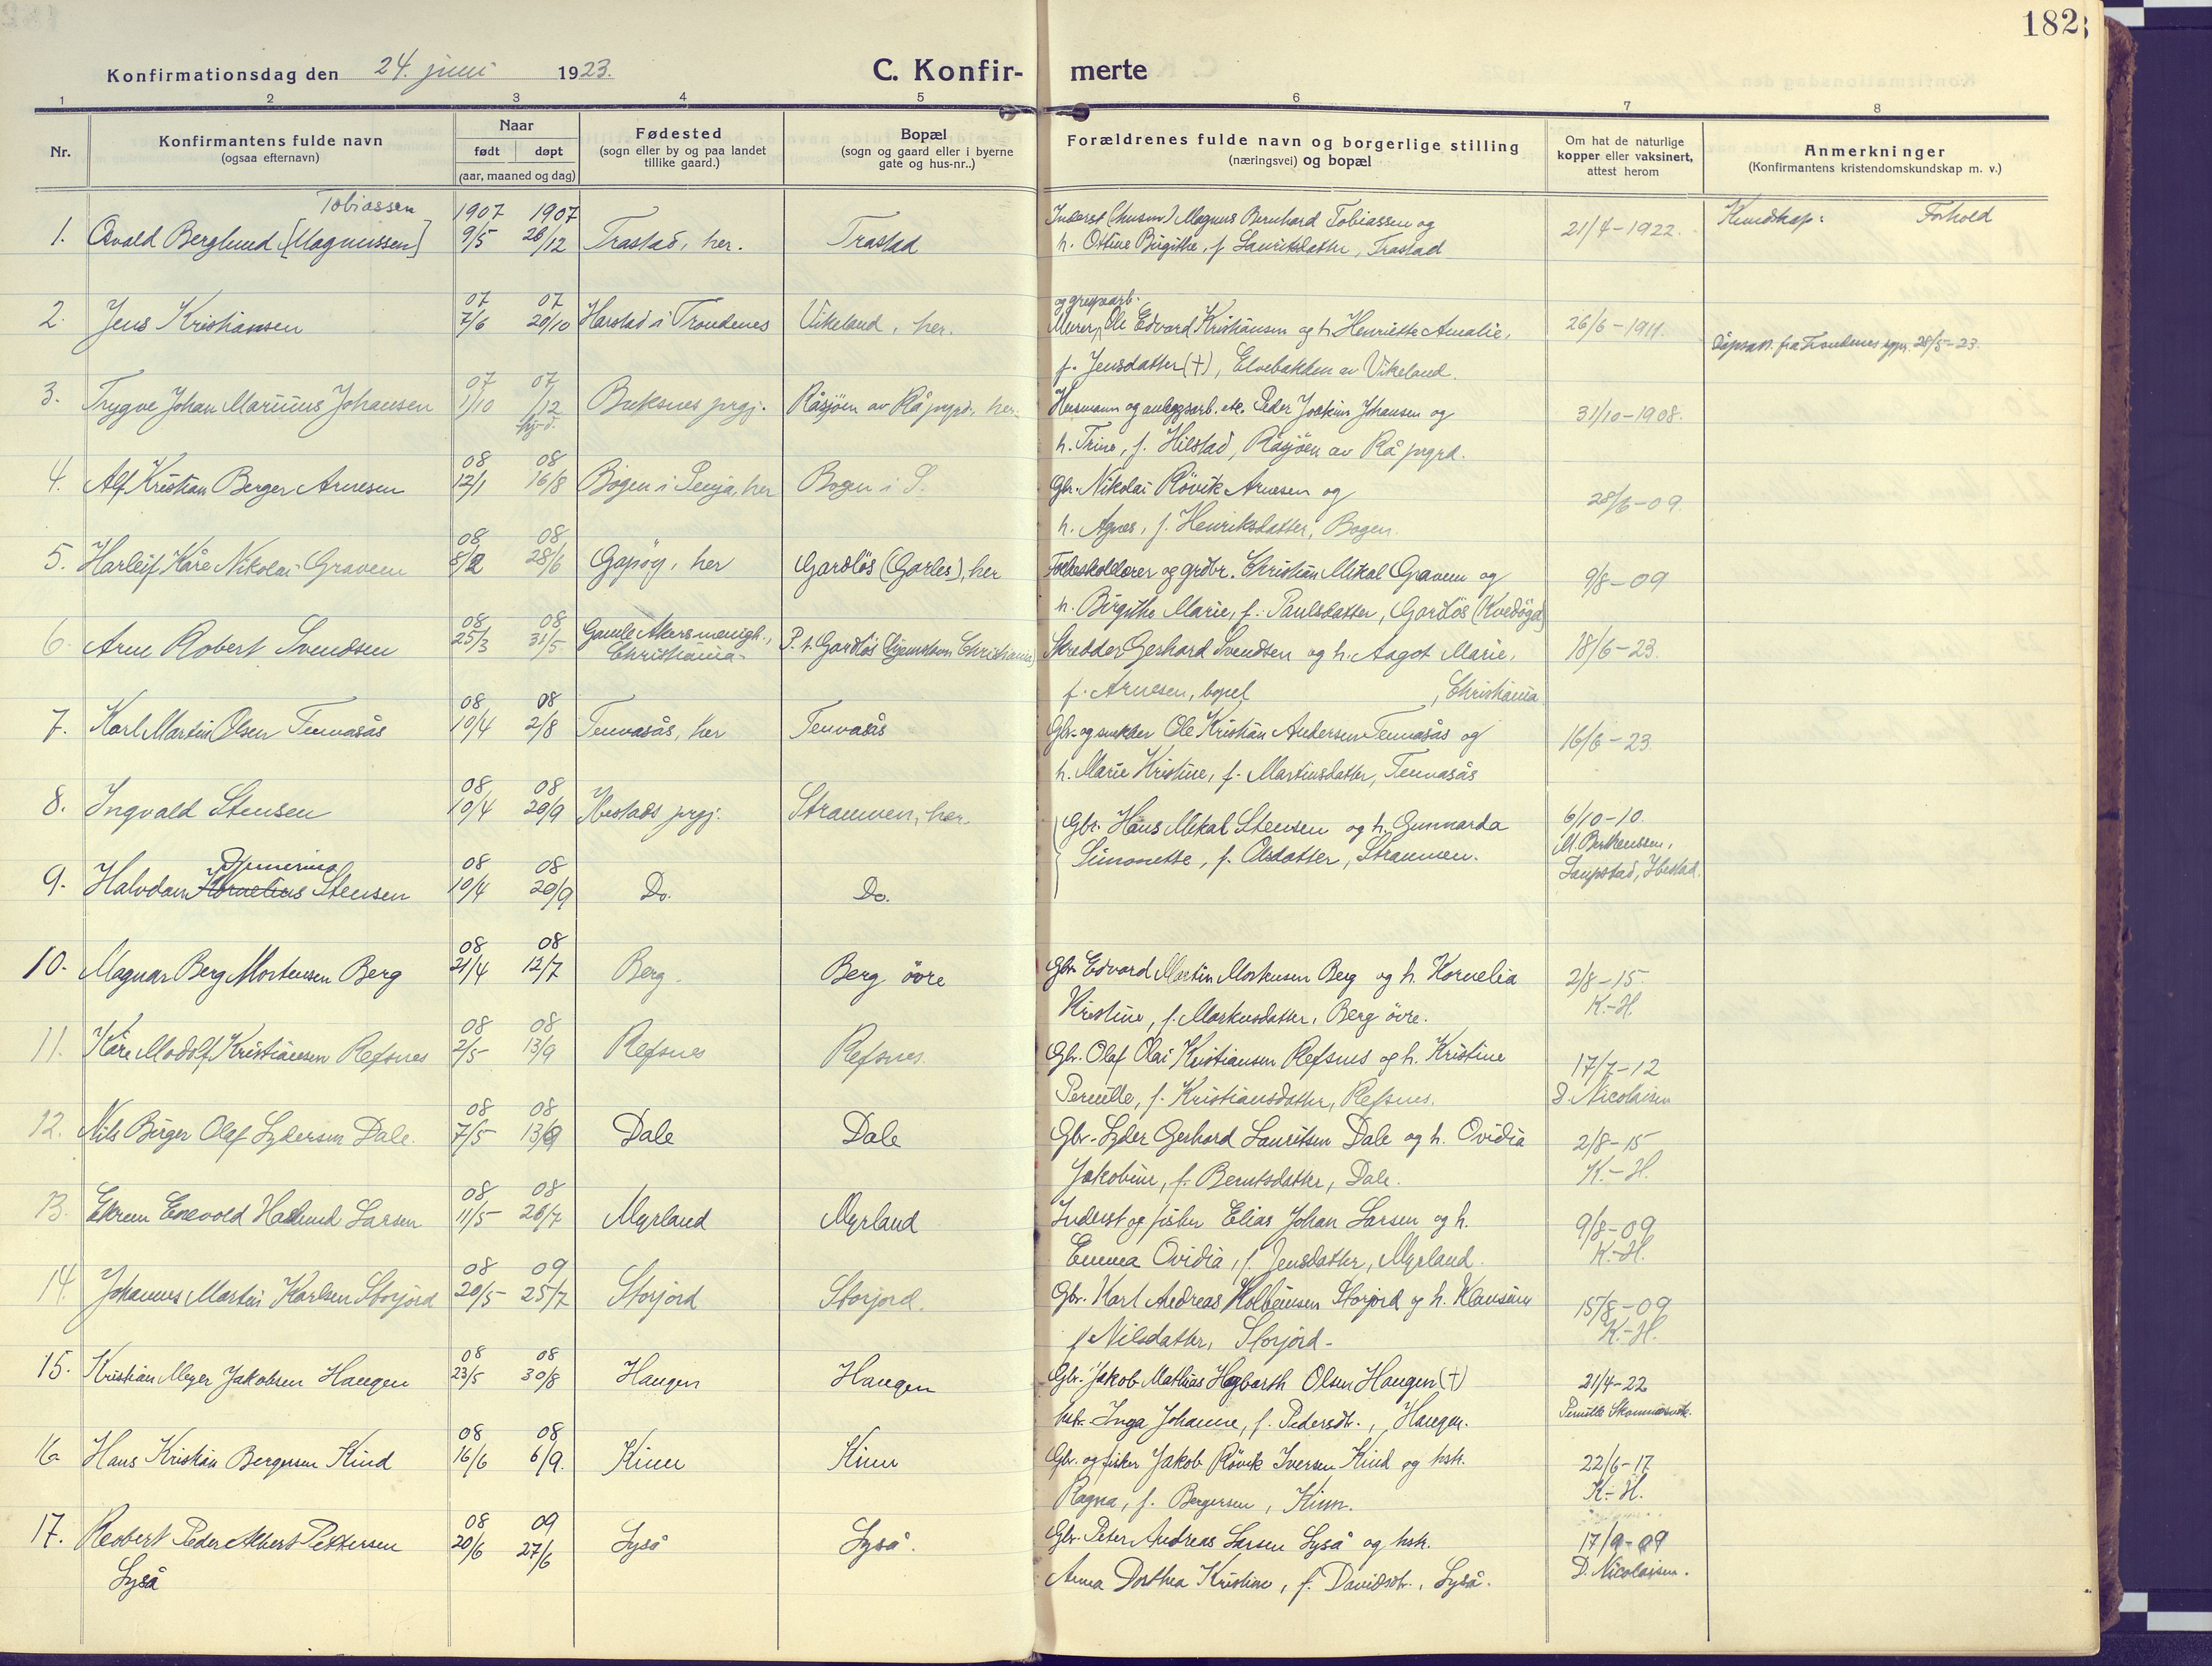 182
Konfirmationsdag den 24. juni 1923.
C. Konfir- merte
1 2 3 4 5 6 7 8
Nr.
Konfirmantens fulde navn
(ogsaa efternavn)
Naar
født døpt
(aar, maaned og dag)
Fødested
(sogn eller by og paa landet
tillike gaard.)
Bopæl
(sogn og gaard eller i byerne
gate og hus-nr..)
Forældrenes fulde navn og borgerlige stilling
(næringsvei) og bopæl
Om hat de naturlige
kopper eller vaksinert,
attest herom
Anmerkninger
(Konfirmantens kristendomskundskap m. v.)
Tobiassen 1907 1907 Inderst (husm) Magnus Bernhard Tobiassen og Kundskap: Forhold
1. Osvald Berglund [Magnussen] 9/5 26/12 Trastad, her. Trastad h. Ottine Birgithe, f. Lauritsdatter, Trastad 21/4-1922.
07 07 og gruvearb.
2. Jens Kristiansen 7/6 20/10 Harstad i Trondenes Vikeland, her. Murer, Ole Edvard Kristiansen og h. Henriette Amalie, 26/6-1911. Dåpsatt. fra Trondenes spr. 28/5-23.
f. Jensdatter (†), Elvebakken av Vikeland.
07 07
3. Trygve Johan Marinius Johansen 1/10 1/12 Buksnes prgj. Råsjöen av Rå prgd. her. Husmann og anleggsarb. etc. Peder Joakim Johansen og 31/10-1908.
hj-d. h. Trine, f. Hilstad, Råsjöen av Rå prgrd.
08 08
4. Alf Kristian Berger Arnesen 12/1 16/8 Bogen i Senja, her Bogen i S. Gbr. Nikolai Rövik Arnesen og 28/6-09.
h. Agnes, f. Henriksdatter, Bogen.
08 08
5. Harleif Kåre Nikolai Gravem 8/2 28/6 Gapöy, her Gardlös (Garles), her Folkeskolelærer og grdbr. Christian Mikal Gravem og 9/8-09
h. Birgithe Marie, f. Paulsdatter, Gardlös (Kvedöya)
08 08
6. Arne Robert Svendsen 25/3 31/5 Gamle Akersmenigh., Christiania. P. t. Gardlös (hjemstavn Christiania) Skredder Gerhard Svendsen og h. Aagot Marie, 18/6-23.
f. Arnesen, bopel , Christiania
08 08
7. Karl Martin Olsen Tennasås 10/4 2/8 Tennasås, her Tennasås Gbr. og snekker Ole Kristian Andersen Tennasås og 16/6-23.
h. Marie Kristine, f. Martinsdatter, Tennasås
08 08
8. Ingvald Stensen 10/4 20/9 Ibestads prgj. Straumen, her. Gbr. Hans Mikal Stensen og h. Gunnarda 6/10-10.
Simonette, f. Olsdatter, Straumen. M. Berthenssen,
08 08 Laupstad, Ibestad.
9. Halvdan Kornelius Stensen 10/4 20/9 Do. Do.
08 08
10. Magnar Berg Mortensen Berg 21/4 12/7 Berg. Berg övre Gbr. Edvard Martin Mortensen Berg og h. Kornelia 2/8-15.
Kristine, f. Markusdatter, Berg övre. K.-H.
08 08
11. Kåre Modolf Kristiansen Refsnes 2/5 13/9 Refsnes Refsnes. Gbr. Olaf Olai Kristiansen Refsnes og h. Kristine 17/7-12
Pernille, f. Kristiansdatter, Refsnes. D. Nicolaisen
08 08
12. Nils Birger Olaf Lydersen Dale. 7/5 13/9 Dale Dale Gbr. Lyder Gerhard Lauritsen Dale og h. Ovidia 2/8-15
Jakobine, f. Berntsdatter, Dale. K.-H.
08 08
13. Enevold Larsen 11/5 26/7 Myrland Myrland Inderst og fisker Elias Johan Larsen og h. 9/8-09
Emma Ovidia, f. Jensdatter, Myrland. K.-H.
08 09
14. Johannes Martin Karlsen Storjord 20/5 25/7 Storjord Storjord. Gbr. Karl Andreas Kolbeinsen Storjord og h. 15/8-09
f Nilsdatter, Storjord. K.-H.
08 08
15. Kristian Meyer Jakobsen Haugen 23/5 30/8 Haugen Haugen Gbr. Jakob Mathias Hagbarth Olsen Haugen (†) 21/4-22
hstr. Inga Johanne, f. Pedersdtr., Haugen. Pernille
08 08
16. Hans Kristian Bergersen Kind 16/6 6/9. Kinn Kinn Gbr. og fisker Jakob Rövik Iversen Kind og hstr. 22/6-17
Ragna, f. Bergersen, Kinn. K.-H.
08 09
17. Robert Peder Albert Pettersen 20/6 27/6 Lyså Lyså. Gbr. Peter Andreas Larsen Lyså og hstr. 17/9-09
Lyså Anna Dorthea Kristine, f. Davidsdtr., Lyså. D. Nicolaisen.